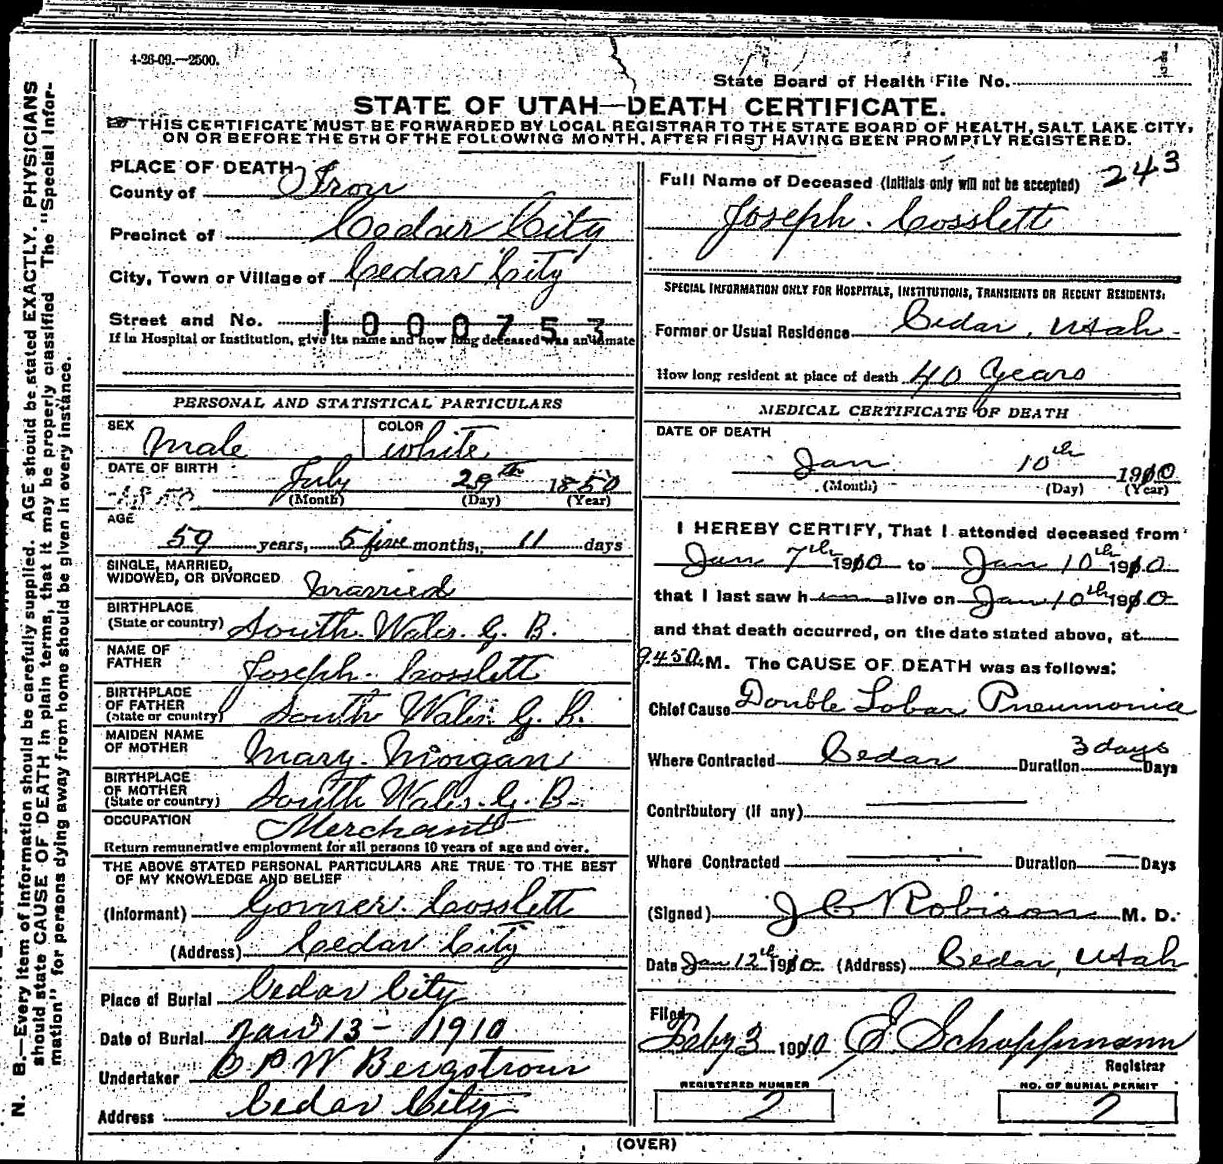 4-26-09.—2500.
State Board of Health File No.
STATE OF UTAH—DEATH CERTIFICATE.
THIS CERTIFICATE MUST BE FORWARDED BY LOCAL REGISTRAR TO THE STATE BOARD OF HEALTH, SALT LAKE CITY,
ON OR BEFORE THE 5TH OF THE FOLLOWING MONTH, AFTER FIRST HAVING BEEN PROMPTLY REGISTERED.
N. B.—Every item of information should be carefully supplied. AGE should be stated EXACTLY. PHYSICIANS
should state CAUSE OF DEATH in plain terms, that it may be properly classified. The "Special Infor-
mation" for persons dying away from home should be given in every instance.
PLACE OF DEATH
County of Iron
Precinct of Cedar City
City, Town or Village of Cedar City
Street and No. 1000753
If in Hospital or Institution, give its name and how long deceased was an inmate
PERSONAL AND STATISTICAL PARTICULARS
SEX Male COLOR White
DATE OF BIRTH
1850 July 29th 1850
(Month) (Day) (Year)
AGE
59 years, 5 five months, 11 days
SINGLE, MARRIED,
WIDOWED, OR DIVORCED Married
BIRTHPLACE
(State or country) South Wales. G. B.
NAME OF
FATHER Joseph Cosslett
BIRTHPLACE
OF FATHER
(State or country) South Wales G. B.
MAIDEN NAME
OF MOTHER Mary Morgan
BIRTHPLACE
OF MOTHER
(State or country) South Wales. G. B.
OCCUPATION Merchant
Return remunerative employment for all persons 10 years of age and over.
THE ABOVE STATED PERSONAL PARTICULARS ARE TRUE TO THE BEST
OF MY KNOWLEDGE AND BELIEF
(Informant) Gomer Cosslett
(Address) Cedar City
Place of Burial Cedar City
Date of Burial Jan 13- 1910
Undertaker P W Bergstrom
Address Cedar City
243
Full Name of Deceased (Initials only will not be accepted)
Joseph. Cosslett
SPECIAL INFORMATION ONLY FOR HOSPITALS, INSTITUTIONS, TRANSIENTS OR RECENT RESIDENTS:
Former or Usual Residence Cedar, Utah
How long resident at place of death 40 Years
MEDICAL CERTIFICATE OF DEATH
DATE OF DEATH
Jan 10th 1910
(Month) (Day) (Year)
I HEREBY CERTIFY, That I attended deceased from
Jan 7th 1910 to Jan 10th 1910
that I last saw h alive on Jan 10th 1910
and that death occurred, on the date stated above, at
M. The CAUSE OF DEATH was as follows:
Chief Cause Double Lobar Pneumonia
Where Contracted Cedar Duration 3 days Days
Contributory (if any)
Where Contracted Duration Days
(Signed) J C Robison M. D.
Date Jan 12th 1910 (Address) Cedar, Utah
Filed
Feby 3 1910 E Schoppmann
Registrar
REGISTERED NUMBER
2
NO. OF BURIAL PERMIT
2
(OVER)